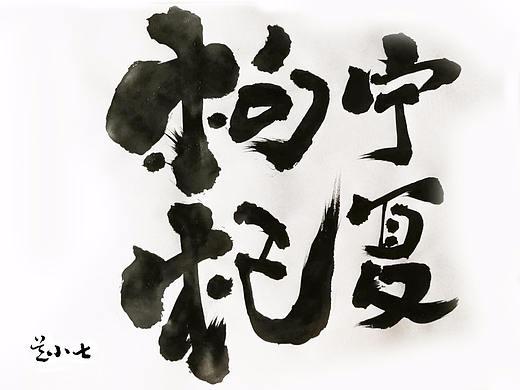 宁夏
枸杞
兰小七